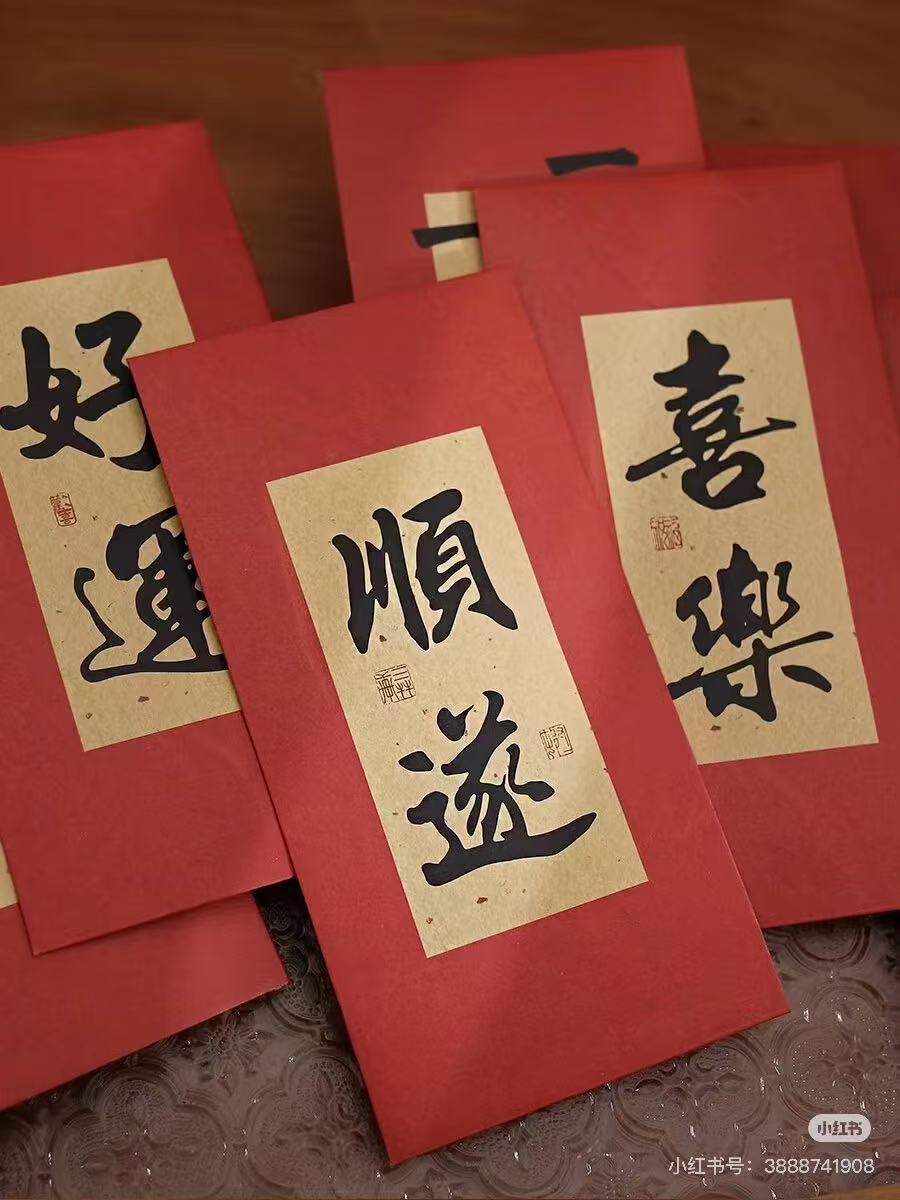 好運
順遂
喜樂
小红书
小红书号：3888741908